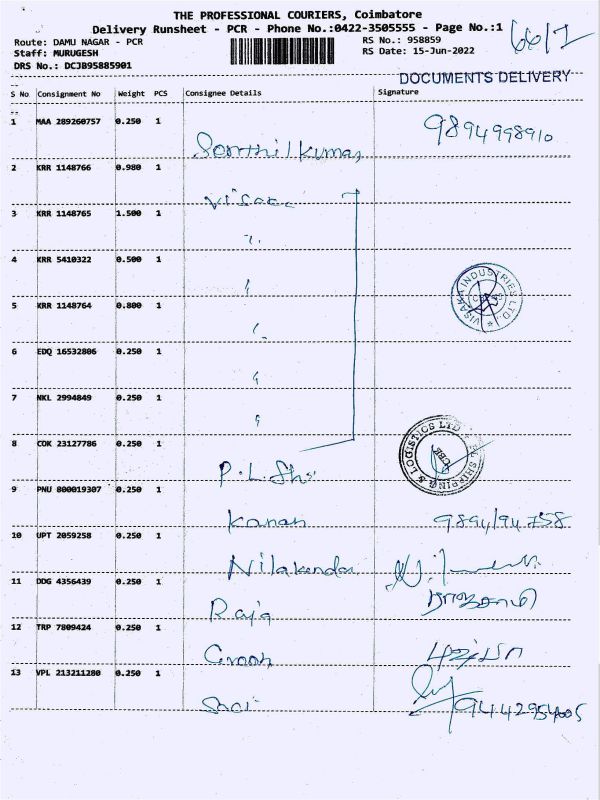 THE PROFESSIONAL COURIERS, Coimbatore
Delivery Runsheet - PCR - Phone No.:0422-3505555 - Page No.:1
66/1
Route: DAMU NAGAR - PCR
RS No.: 958859
Staff: MURUGESH
RS Date: 15-Jun-2022
DRS No.: DCJB95885901
DOCUMENTS DELIVERY
S No Consignment No Weight PCS Consignee Details Signature
1 MAA 289260757 0.250 1 Senthilkumar 9894998910
2 KRR 1148766 0.980 1 Visaka
3 KRR 1148765 1.500 1 "
4 KRR 5410322 0.500 1 "
VISAKA INDUSTRIES LTD.
5 KRR 1148764 0.800 1 "
6 EDQ 16532806 0.250 1 "
7 NKL 2994849 0.250 1 "
8 COK 23127786 0.250 1 P.L.Shi
SHIPPING & LOGISTICS LTD
9 PNU 800019307 0.250 1 Kanan
10 UPT 2059258 0.250 1 Nilakandan
11 DDG 4356439 0.250 1 Raja
12 TRP 7809424 0.250 1
13 VPL 213211280 0.250 1